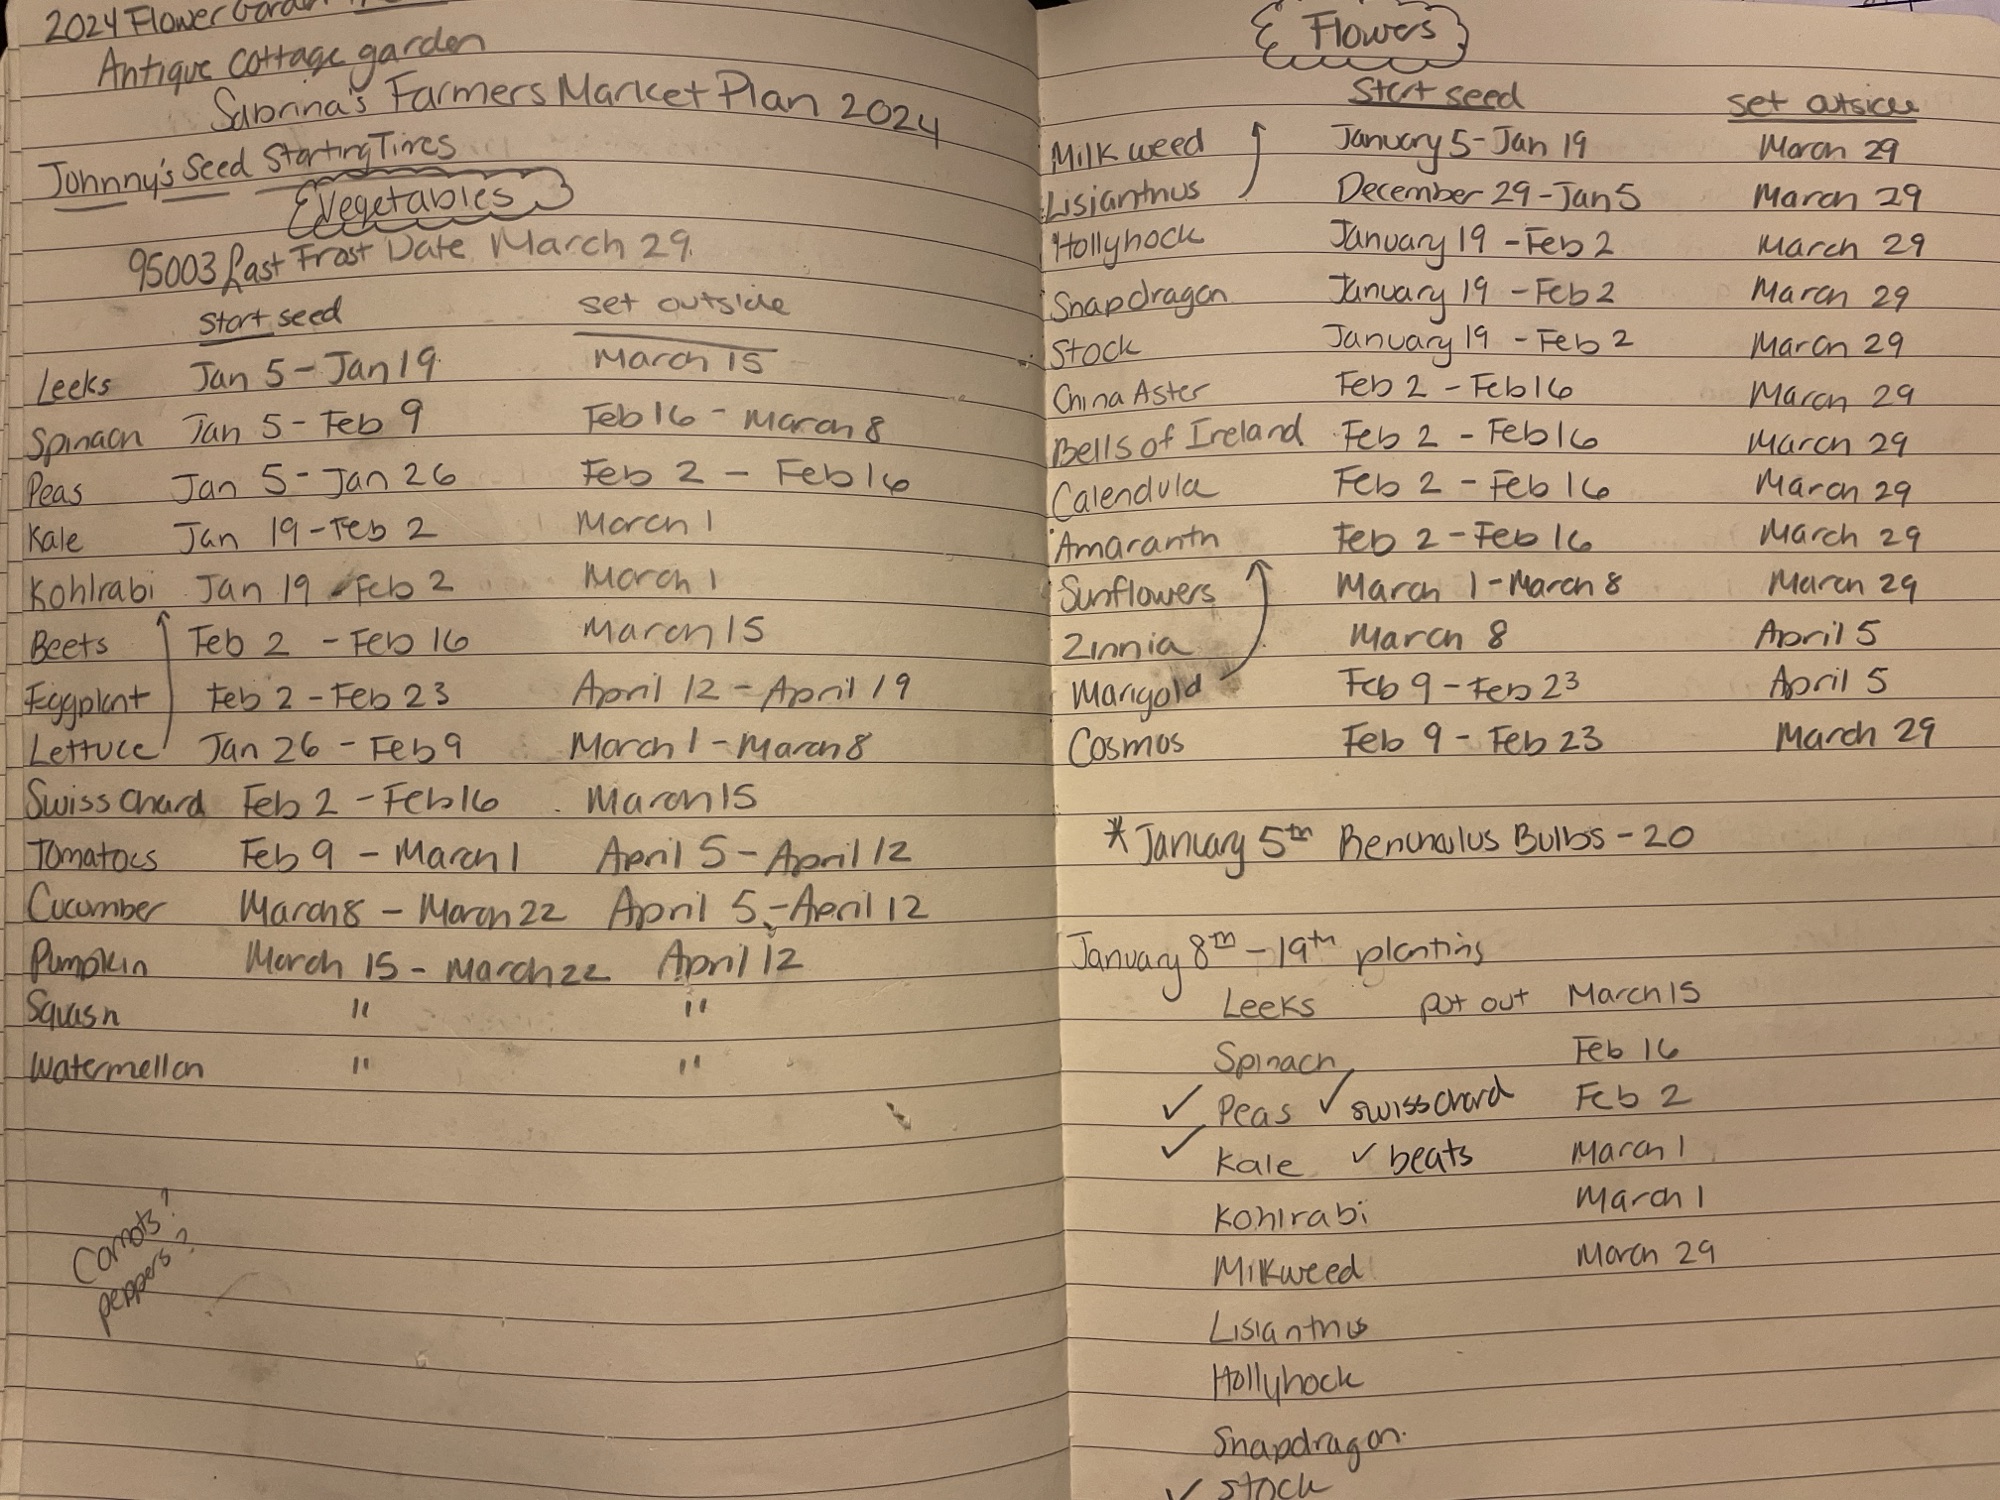 2024 Flower Garden
Antique cottage garden
Sabrina's Farmers Market Plan 2024
Johnny's Seed Starting Times
Vegetables
95003 Last Frost Date March 29
start seed set outside
Leeks Jan 5 - Jan 19 March 15
Spinach Jan 5 - Feb 9 Feb 16 - March 8
Peas Jan 5 - Jan 26 Feb 2 - Feb 16
Kale Jan 19 - Feb 2 March 1
Kohlrabi Jan 19 - Feb 2 March 1
Beets Feb 2 - Feb 16 March 15
Eggplant Feb 2 - Feb 23 April 12 - April 19
Lettuce Jan 26 - Feb 9 March 1 - March 8
Swiss Chard Feb 2 - Feb 16 March 15
Tomatoes Feb 9 - March 1 April 5 - April 12
Cucumber March 8 - March 22 April 5 - April 12
Pumpkin March 15 - March 22 April 12
Squash " "
Watermellon " "
Carrots?
peppers?
Flowers
Start seed set outside
Milk weed January 5 - Jan 19 March 29
Lisianthus December 29 - Jan 5 March 29
Hollyhock January 19 - Feb 2 March 29
Snapdragon January 19 - Feb 2 March 29
Stock January 19 - Feb 2 March 29
China Aster Feb 2 - Feb 16 March 29
Bells of Ireland Feb 2 - Feb 16 March 29
Calendula Feb 2 - Feb 16 March 29
Amaranth Feb 2 - Feb 16 March 29
Sunflowers March 1 - March 8 March 29
Zinnia March 8 April 5
Marigold Feb 9 - Feb 23 April 5
Cosmos Feb 9 - Feb 23 March 29
* January 5th Renunculus Bulbs - 20
January 8th - 19th planting
Leeks put out March 15
Spinach Feb 16
✓ Peas ✓ swisschard Feb 2
✓ Kale ✓ beats March 1
Kohlrabi March 1
Milkweed March 29
Lisianthus
Hollyhock
Snapdragon.
✓ Stock